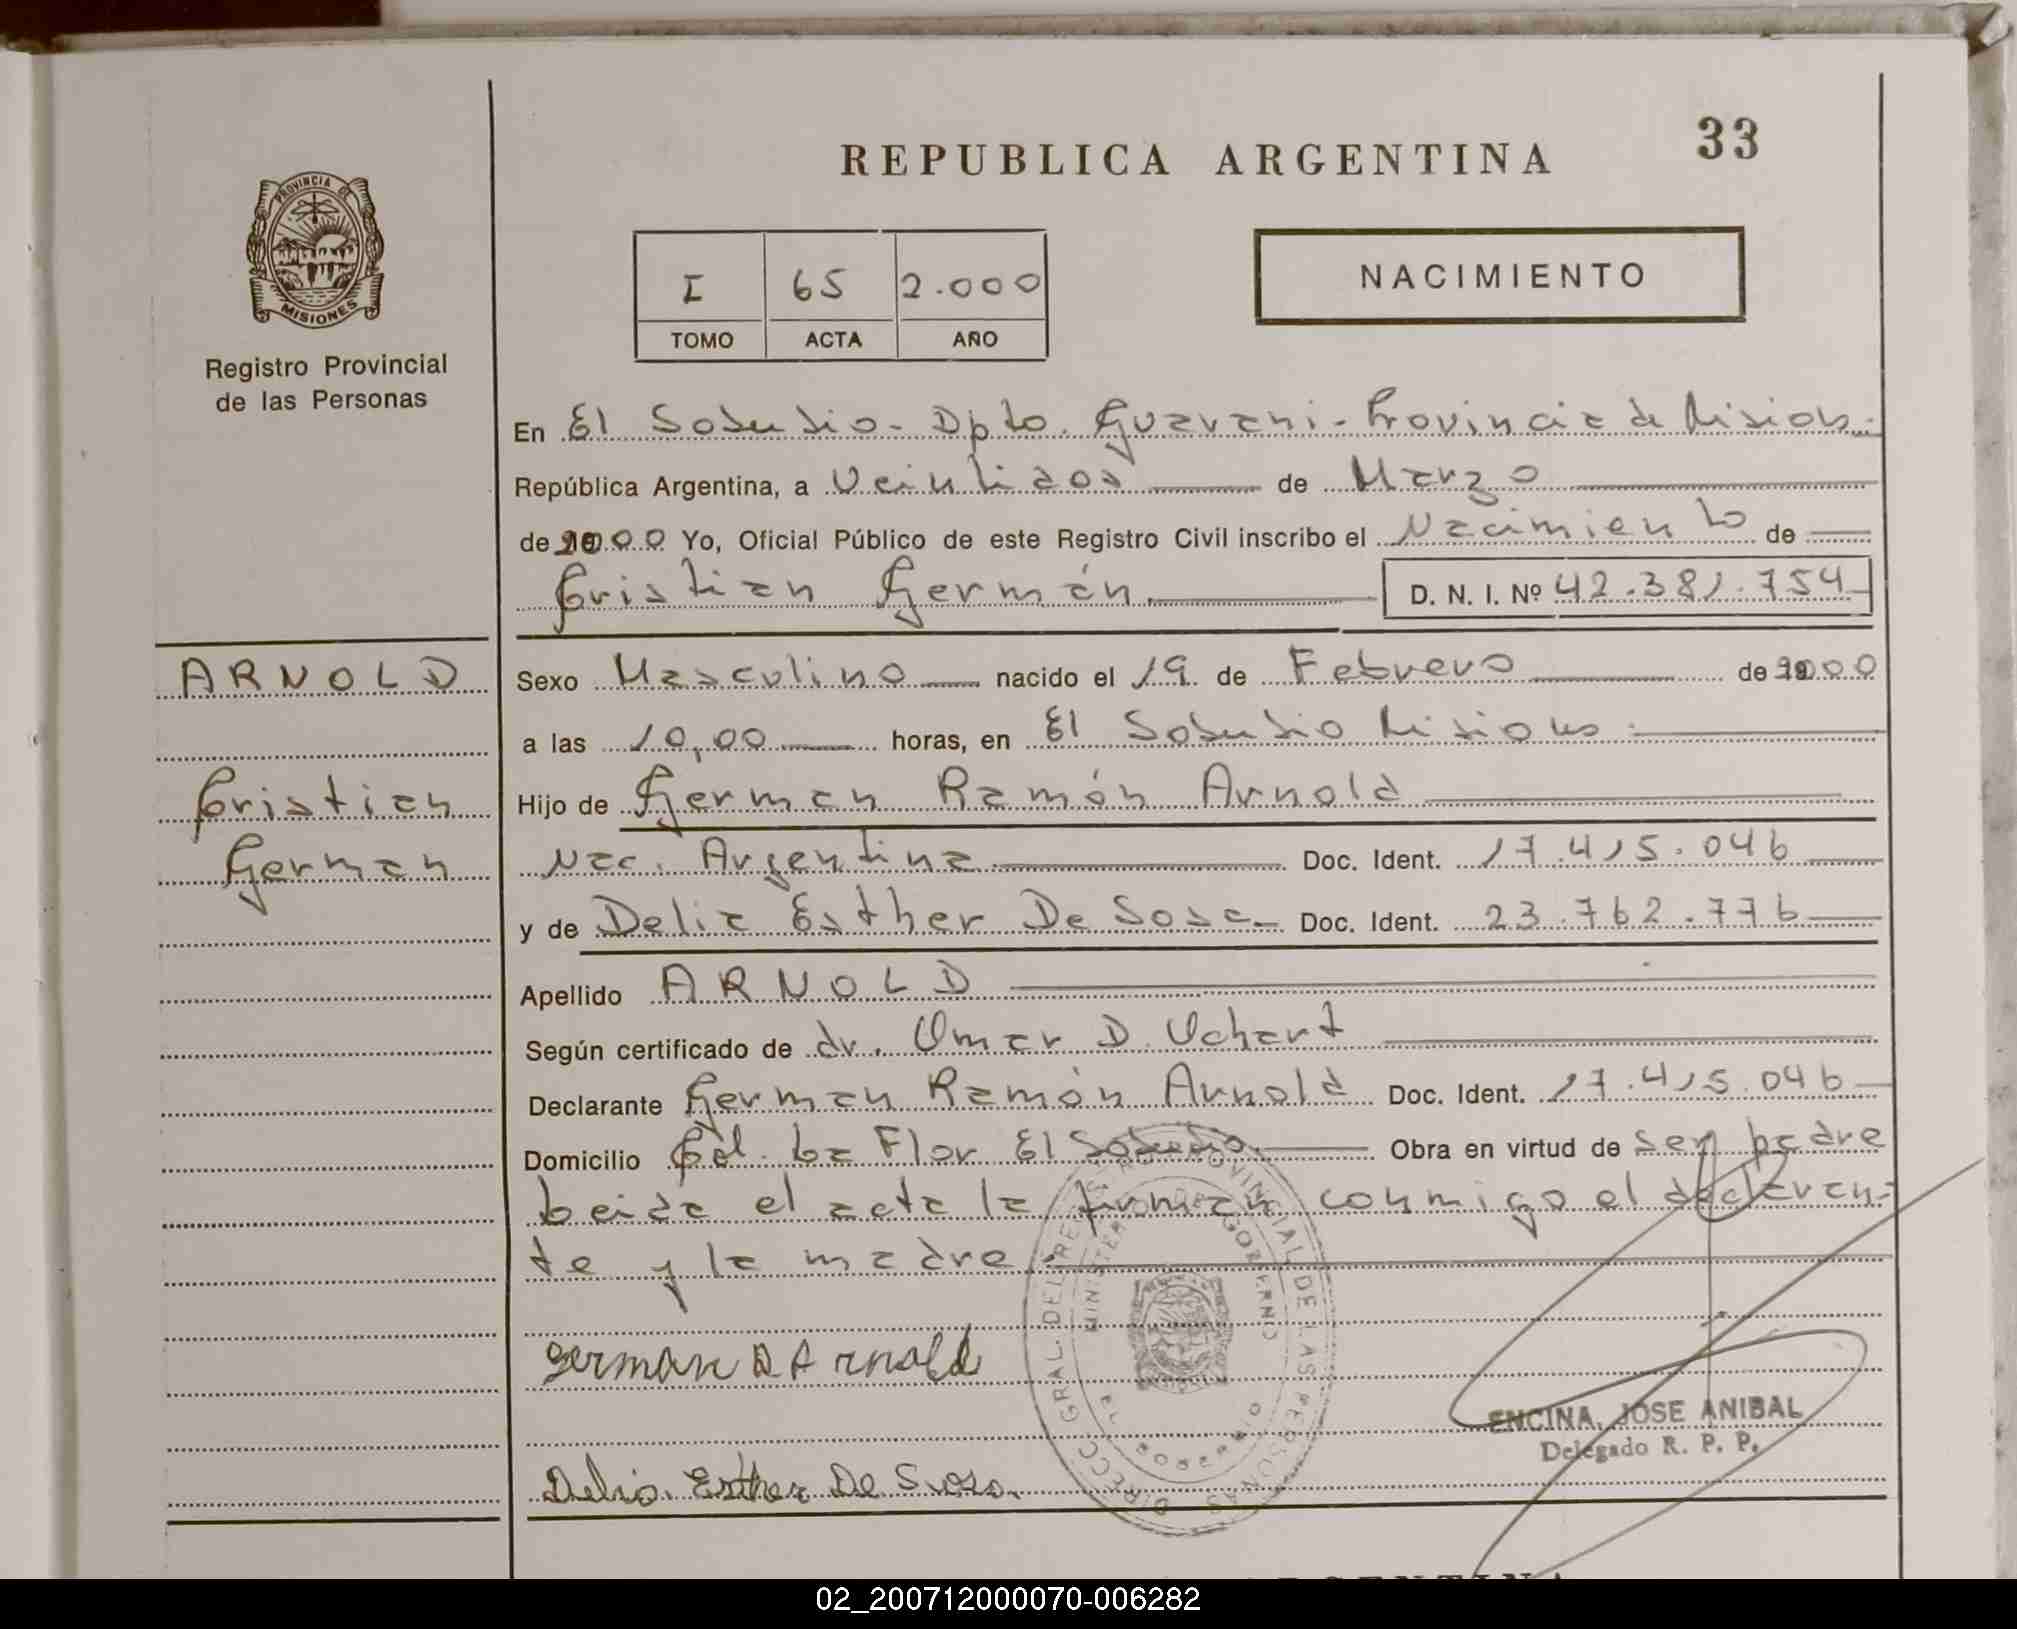 REPUBLICA ARGENTINA
33
PROVINCIA DE
MISIONES
Registro Provincial
de las Personas
I 65 2.000
TOMO ACTA AÑO
NACIMIENTO
En El Soberbio - Dpto. Guarani - Provincia de Misiones.
República Argentina, a Veintidos de Marzo
de 2000 Yo, Oficial Público de este Registro Civil inscribo el Nacimiento de
Cristian Germán. D. N. I. Nº 42.381.754
ARNOLD
Cristian
German
Sexo Masculino nacido el 19 de Febrero de 2000
a las 10,00 horas, en El Soberbio Misiones.
Hijo de German Ramón Arnold
Nac. Argentina. Doc. Ident. 17.415.046
y de Delia Esther De Sosa Doc. Ident. 23.762.776
Apellido ARNOLD
Según certificado de dr. Omar D. Uchart
Declarante German Ramón Arnold Doc. Ident. 17.415.046
Domicilio Col. La Flor El Soberbio. Obra en virtud de ser padre
Leida el acta la firman conmigo el declaran-
te y la madre.
German R Arnold
DIRECC. GRAL. DEL REG. PROVINCIAL DE LAS PERSONAS
MINISTERIO DE GOBIERNO
EL SOBERBIO
ENCINA, JOSE ANIBAL
Delegado R. P. P.
Delia Esther De Sosa.
ARGENTINA
02_200712000070-006282